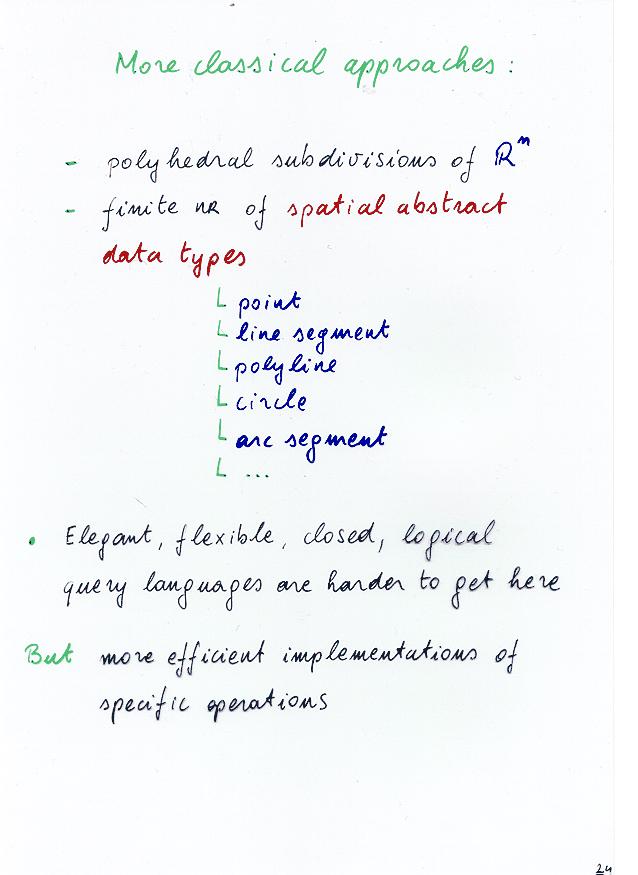 More classical approaches :
- polyhedral subdivisions of ℝⁿ
- finite nr of spatial abstract
data types
└ point
└ line segment
└ polyline
└ circle
└ arc segment
└ ...
• Elegant, flexible, closed, logical
query languages are harder to get here
But more efficient implementations of
specific operations
24